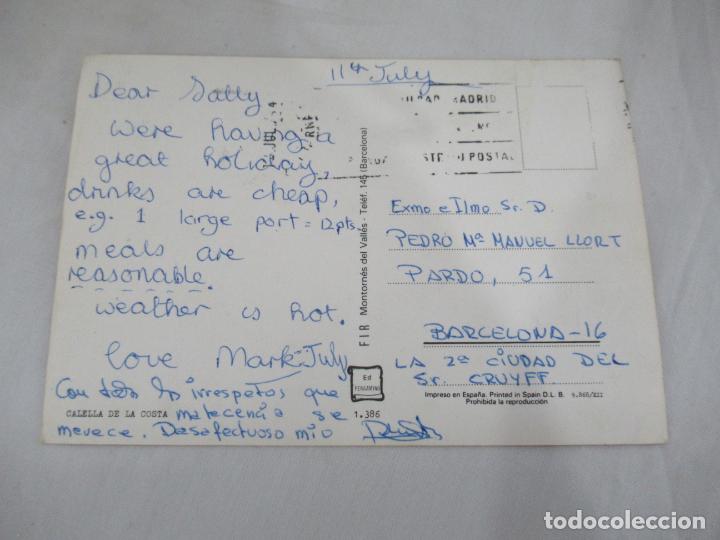 11th July
Dear Sally
were having a
great holiday,
drinks are cheap,
e.g. 1 large port = 12pts.
meals are
reasonable.
weather is hot.
love Mark-July
Con todos los irrespetos que
matecencia se
merece. Desafectuoso mio
CALELLA DE LA COSTA
1.386
FIR Montornés del Vallés - Teléf. 145 (Barcelona)
Ed
PERGAMINO
MADRID
POSTAL
Exmo e Ilmo Sr. D.
PEDRO Mª MANUEL LLORT
PARDO, 51
BARCELONA-16
LA 2ª CIUDAD DEL
Sr. CRUYFF.
Impreso en España. Printed in Spain D.L. B. 9.868/XII
Prohibida la reproducción
todocoleccion.net